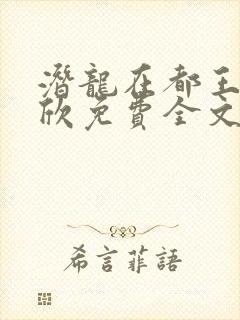 潛龍在都王
欣免費全文
希言菲語